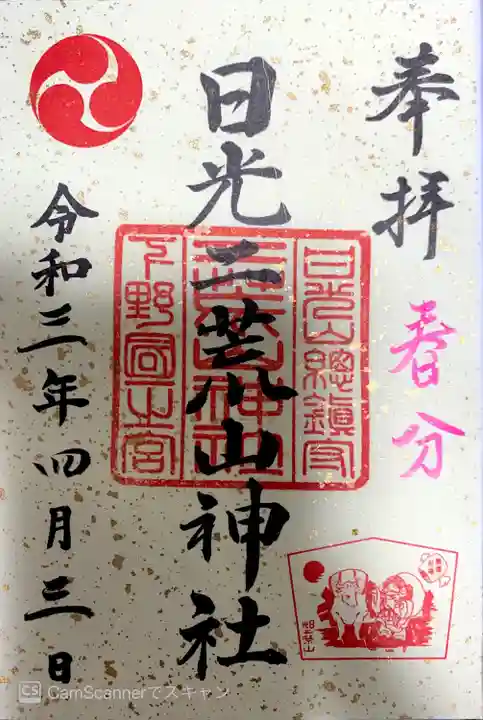 奉拝
春分
日光二荒山神社
日光山總鎮守
下野國一之宮
令和三年四月三日
CS CamScannerでスキャン